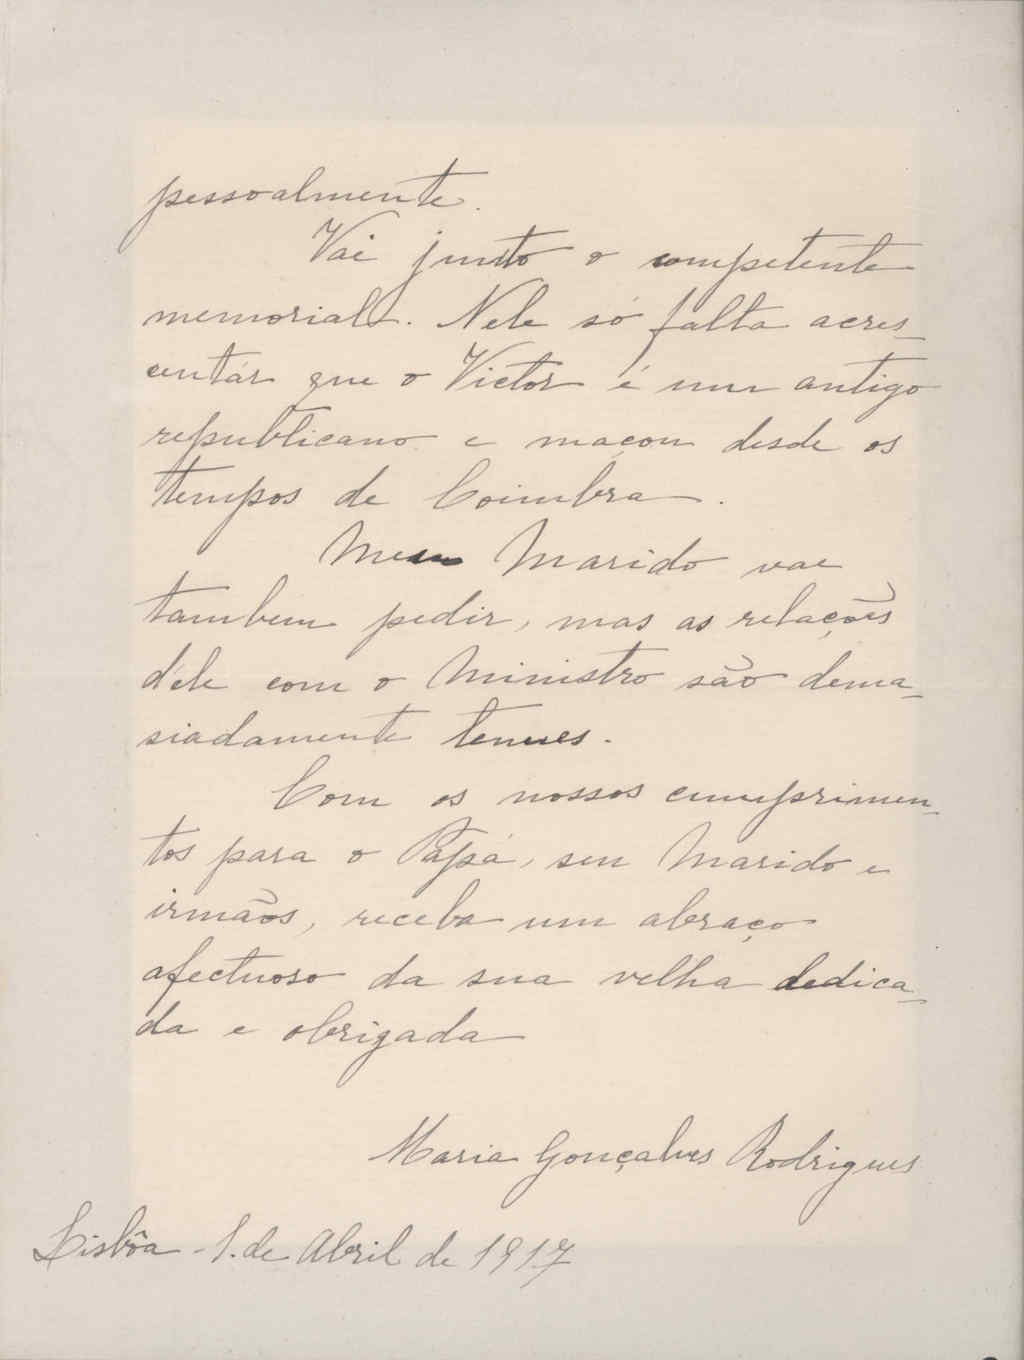 pessoalmente.
Vai junto o competente
memorial. Nele só falta acres-
centár que o Victor é um antigo
republicano e maçon desde os
tempos de Coimbra.
Meu Marido vae
tambem pedir, mas as relações
d'ele com o Ministro são dema-
siadamente tenues.
Com os nossos cumprimen-
tos para o Papá, seu Marido e
irmãos, receba um abraço
afectuoso da sua velha dedica-
da e obrigada
Maria Gonçalves Rodrigues
Lisbôa - 1. de Abril de 1917